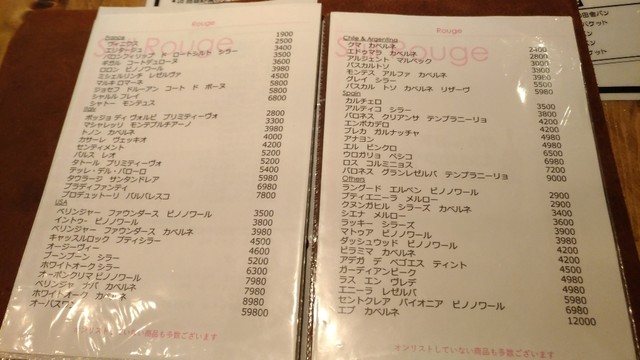 Rouge
France
ヴィニウス 1900
モンテ デュー 2500
バロンフィリップ ド ロートシルト シラー 3400
ギガル コートデュローヌ 3500
ロロン ピノノワール 3600
ミシェルリンチ レゼルヴァ 3980
マルキ ロマーネ 4500
ジョセフ ドルーアン コート ド ボーヌ 5800
シャルル フレイ 5800
シャトー モンデュス 6800
ポッジョ ディ ヴォルピ プリミティーヴォ 2800
マシャレッリ モンテプルチアーノ 3300
トノン カベルネ 3980
カサーレ ヴェッキオ 4000
センティメント 4200
パルス レオ 5200
タトール プリミティーヴォ 5200
テッレ・デル・バローロ 5400
タウラージ サンタンドレア 5980
プラディファンティ 6980
プロデュットーリ バルバレスコ 7800
USA
ベリンジャー ファウンダース ピノノワール 3500
イントゥ ピノノワール 3800
ベリンジャー ファウンダース カベルネ 3980
キャッスルロック プティシラー 4500
オージーヴィー 4600
ブーンブーン シラー 5200
ホワイトオーク シラー 6300
オーボンクリマ ピノノワール 7980
ベリンジャー ナパ カベルネ 7980
ホワイトオーク カベルネ 8980
オーパスワン 59800
オンリストしていない商品も多数ございます
Rouge
Chile & Argentino
クマ カベルネ 2400
エドゥマラ カベルネ 2800
アルジェント マルベック 3000
パスカルトソ 3900
モンテス アルファ カベルネ 3900
グレイ シラー 5500
パスカル トソ カベルネ リザーヴ 5980
Spain
カルチェロ 3500
アルティコ シラー 3800
バロネス クリアンサ テンプラニーリョ 4200
エンボカデロ 4200
ブレカ ガルナッチャ 4980
アナヨン 4980
エル ピンクロ 6500
ウロガリョ ペシコ 6980
ロス コルミニョス 7200
バロネス グランレゼルバ テンプラニーリョ 9000
Others
ラングード エルベン ピノノワール 2900
プティエニーラ メルロー 2900
クヌンガヒル シラーズ カベルネ 3400
シエナ メルロー 3500
ラッキー シラーズ 3900
マトゥア ピノノワール 3980
ダッシュウッド ピノノワール 3980
ピラミマ カベルネ 4200
アデガ デ ペゴエス ティント 4500
ガーディアンピーク 4980
ラス エン ヴレデ 4980
エニーラ レゼルバ 5980
セントクレア パイオニア ピノノワール 6980
エブ カベルネ 12000
オンリストしていない商品も多数ございます